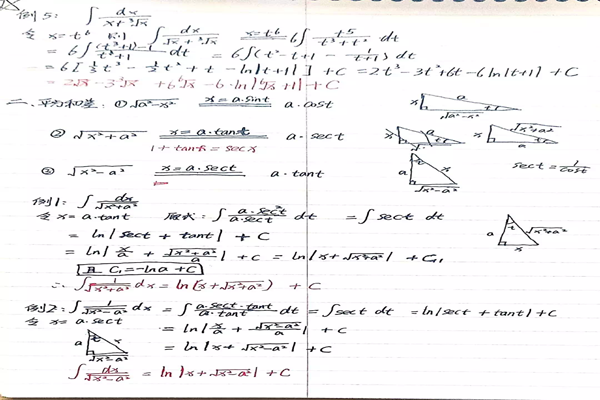 例5: ∫ dx/(√x+∛x)
令 x=t⁶ 则 ∫ dx/(√x+∛x) x=t⁶ 6∫ t⁵/(t³+t²) dt
=6∫ ((t³+1)-1)/(t+1) dt = 6∫(t²-t+1-1/(t+1)) dt
=6[⅓t³-½t²+t-ln|t+1|]+C=2t³-3t²+6t-6ln|t+1|+C
=2√x-3∛x+6⁶√x-6·ln|⁶√x+1|+C
二、平方和差: ①√(a²-x²) x=a·sint a·cost x a t √(a²-x²)
②√(x²+a²) x=a·tant a·sect x √(x²+a²) a t
1+tan²x=sec²x
③√(x²-a²) x=a·sect a·tant a t x √(x²-a²) sect=1/cost
例1: ∫ dx/√(x²+a²)
令 x=a·tant 原式: ∫ a·sec²t/(a·sect) dt =∫sect dt a t √(x²+a²) x
=ln|sect+tant|+C
=ln|x/a+√(x²+a²)/a|+C=ln|x+√(x²+a²)|+C₁
且 C₁=-lna+C
∴∫ 1/√(x²+a²) dx=ln(x+√(x²+a²))+C
例2: ∫ 1/√(x²-a²) dx =∫ a·sect·tant/(a·tant) dt=∫sect dt=ln|sect+tant|+C
令 x=a·sect =ln|x/a+√(x²-a²)/a|+C
a t x √(x²-a²) =ln|x+√(x²-a²)|+C
∫ dx/√(x²-a²) = ln|x+√(x²-a²)|+C